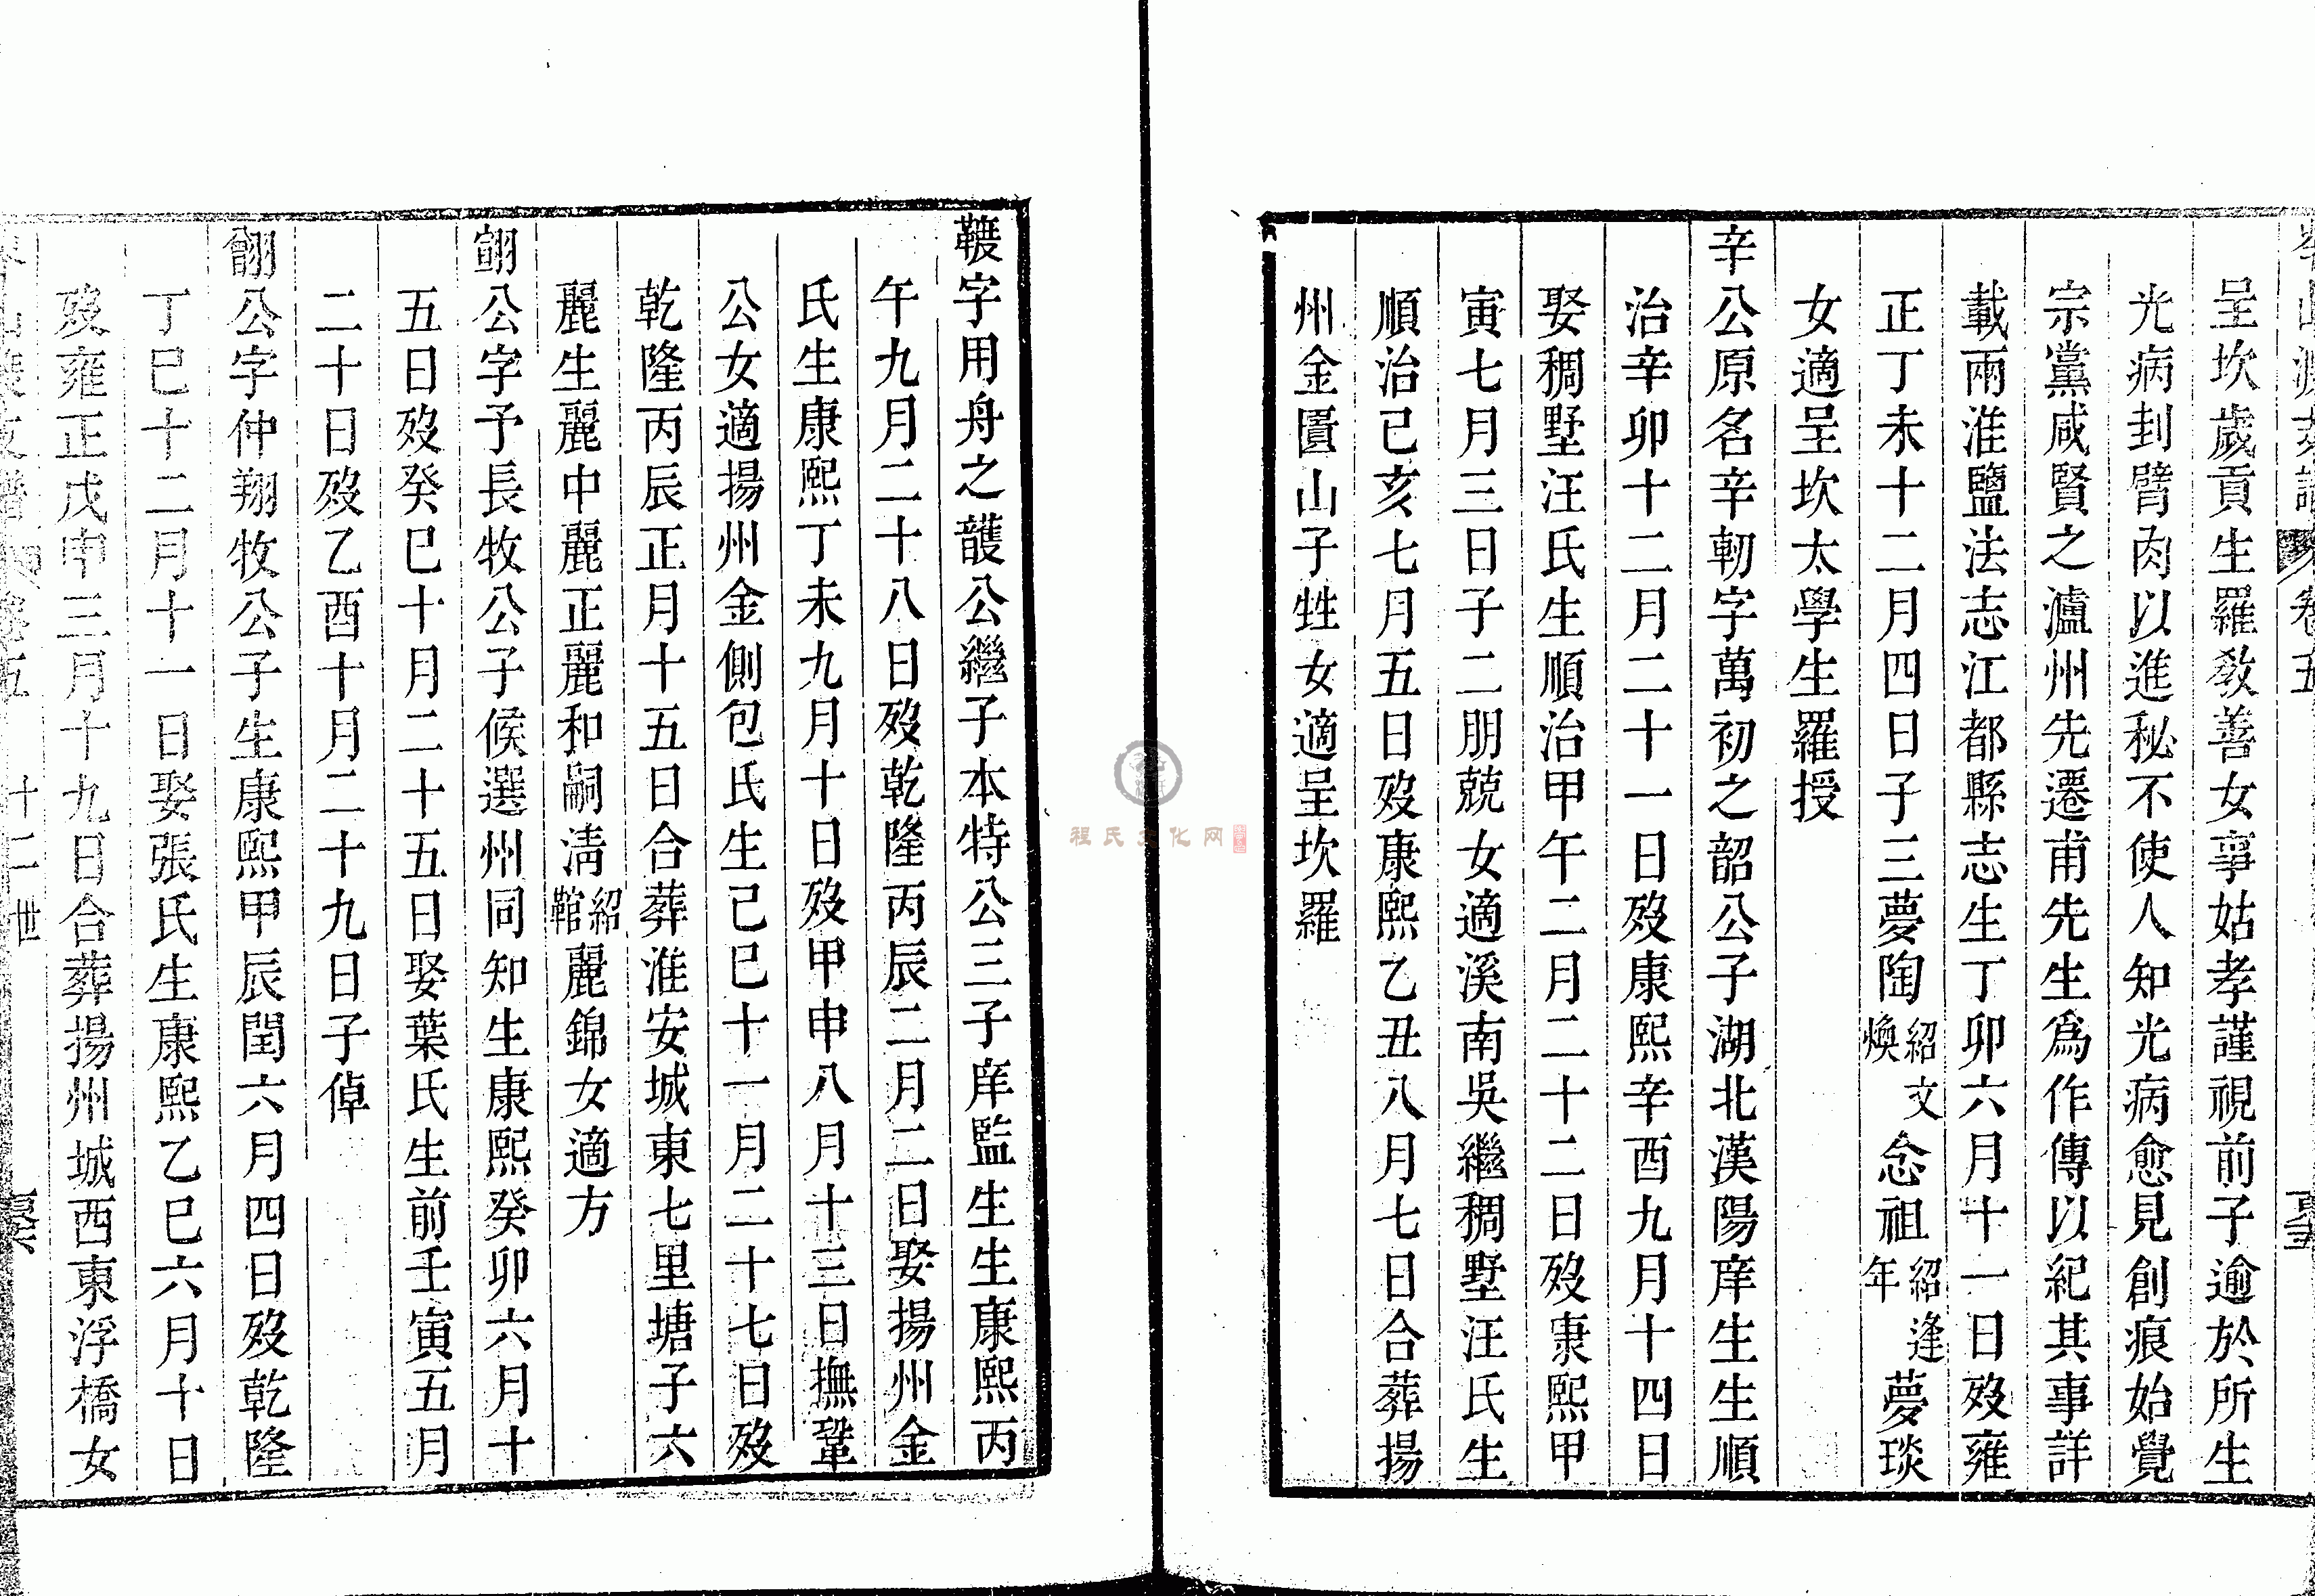 呈坎歲貢生羅教善女事姑孝謹視前子逾於所生
光病刲臂肉以進秘不使人知光病愈見創痕始覺
宗黨咸賢之瀘州先遷甫先生爲作傳以紀其事詳
載兩淮鹽法志江都縣志生丁卯六月十一日歿雍
正丁未十二月四日子三夢陶紹文煥念祖紹逢年夢琰
女適呈坎太學生羅授
辛公原名辛軔字萬初之韶公子湖北漢陽庠生生順
治辛卯十二月二十一日歿康熙辛酉九月十四日
娶稠墅汪氏生順治甲午二月二十二日歿康熙甲
寅七月三日子二朋兢女適溪南吳繼稠墅汪氏生
順治己亥七月五日歿康熙乙丑八月七日合葬揚
州金匱山子甡女適呈坎羅
字用舟之頀公繼子本特公三子庠監生生康熙丙
午九月二十八日歿乾隆丙辰二月二日娶揚州金
氏生康熙丁未九月十日歿甲申八月十三日撫鞏
公女適揚州金側包氏生己巳十一月二十七日歿
乾隆丙辰正月十五日合葬淮安城東七里塘子六
麗生麗中麗正麗和嗣清紹麗錦女適方
翃公字予長牧公子候選州同知生康熙癸卯六月十
五日歿癸巳十月二十五日娶葉氏生前壬寅五月
二十日歿乙酉十月二十九日子倬
公字仲翔牧公子生康熙甲辰閏六月四日歿乾隆
丁巳十二月十一日娶張氏生康熙乙巳六月十日
歿雍正戊申三月十九日合葬揚州城西東浮橋女
十二世
程氏文化网